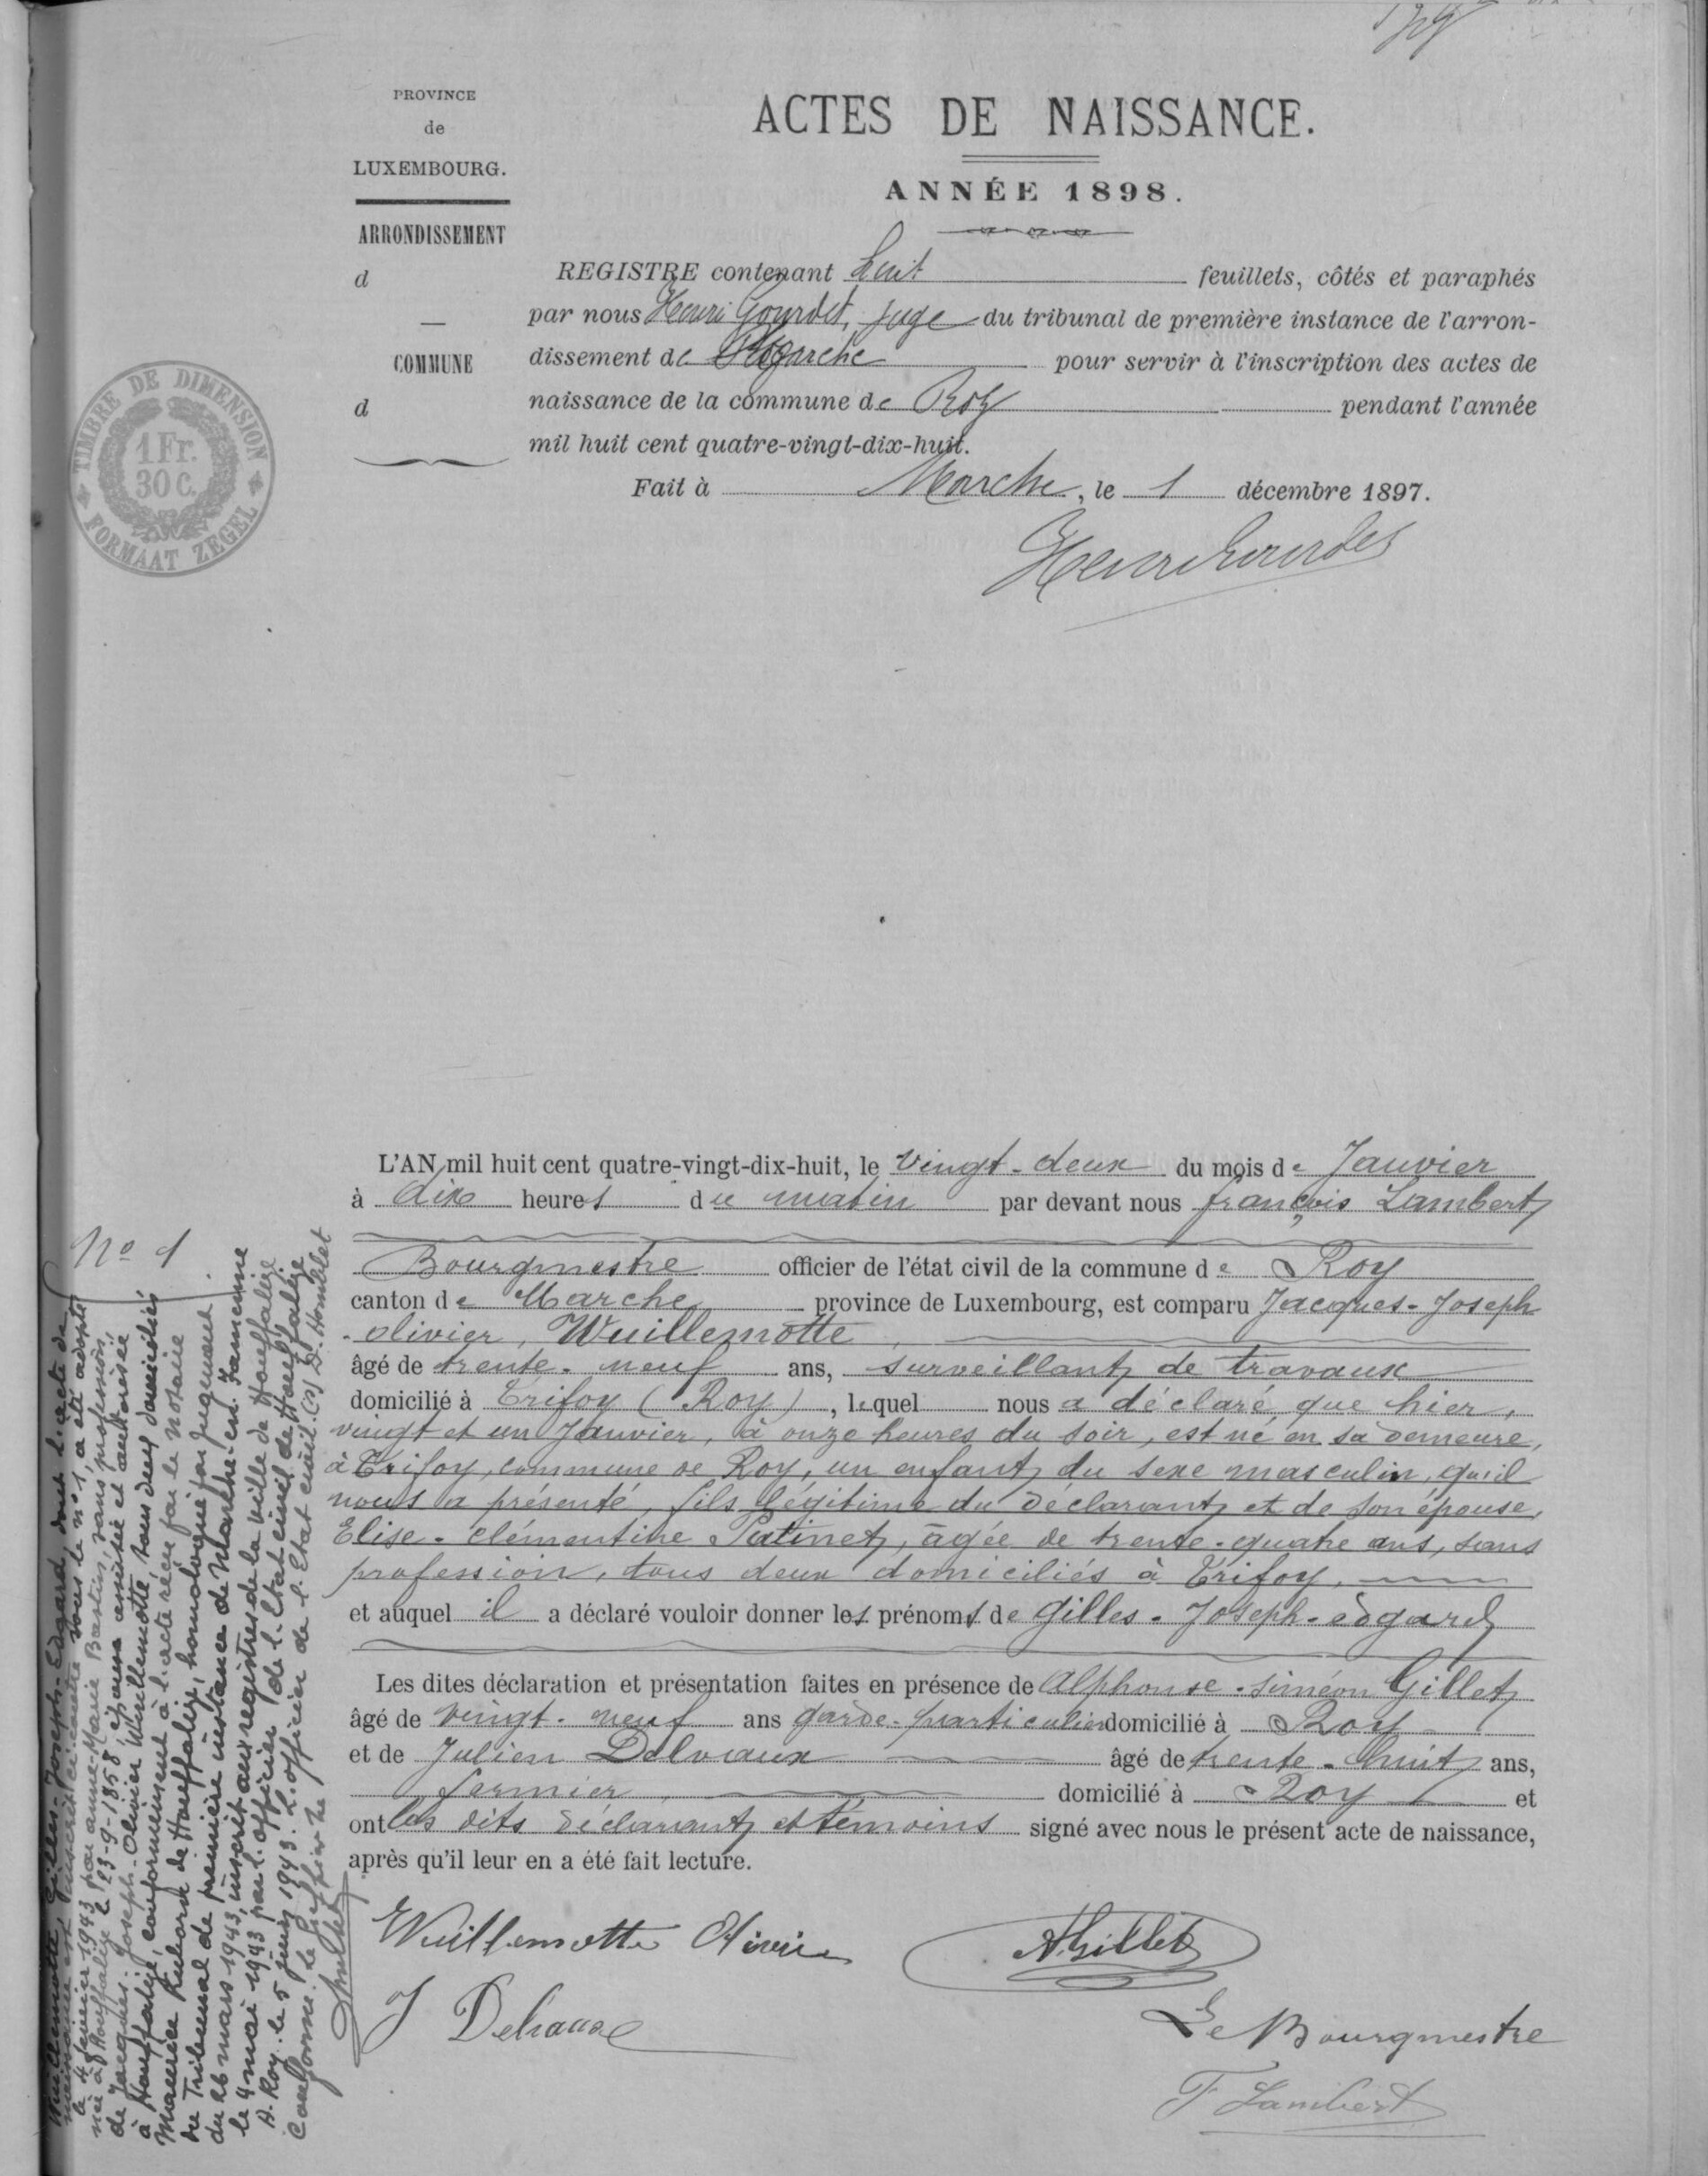 PROVINCE
de
LUXEMBOURG.
ARRONDISSEMENT
d
COMMUNE
d
TIMBRE DE DIMENSION
1 Fr.
30 C.
FORMAAT ZEGEL
ACTES DE NAISSANCE.
ANNÉE 1898.
REGISTRE contenant huit feuillets, côtés et paraphés
par nous Henri Gourdet, juge du tribunal de première instance de l'arron-
dissement de Marche pour servir à l'inscription des actes de
naissance de la commune de Roy pendant l'année
mil huit cent quatre-vingt-dix-huit.
Fait à Marche, le 1 décembre 1897.
Henri Gourdet
No 1
L'AN mil huit cent quatre-vingt-dix-huit, le vingt-deux du mois de Janvier
à dix heures du matin par devant nous françois Lambert
Bourgmestre officier de l'état civil de la commune de Roy
canton de Marche province de Luxembourg, est comparu Jacques-Joseph
-olivier, Wuillemotte
âgé de trente-neuf ans, surveillant de travaux
domicilié à Trifoy (Roy), lequel nous a déclaré que hier,
vingt et un Janvier, à onze heures du soir, est né en sa demeure,
à Trifoy, commune de Roy, un enfant du sexe masculin, qu'il
nous a présenté, fils légitime du déclarant et de son épouse,
Elise-clémentine Patinet, âgée de trente-quatre ans, sans
profession, tous deux domiciliés à Trifoy,
et auquel il a déclaré vouloir donner les prénoms de gilles-Joseph-edgard
Les dites déclaration et présentation faites en présence de Alphonse-siméon Gillet
âgé de vingt-neuf ans garde-particulier domicilié à Roy
et de Julien Delvaux âgé de trente-huit ans,
fermier, domicilié à Roy et
ont les dits déclarant et témoins signé avec nous le présent acte de naissance,
après qu'il leur en a été fait lecture.
Wuillemotte Olivier
A. Gillet
J Delvaux
Le Bourgmestre
F Lambert
Wuillemotte, Gilles-Joseph-Edgard, dont l'acte de
naissance est transcrit ci-contre sous le n° 1, a été adopté
le 4 février 1943 par Anne-Marie Bastin, sans profession,
née à Houffalize le 23-9-1858, épouse assistée et autorisée
de Jacques-Joseph-Olivier Wuillemotte, tous deux domiciliés
à Houffalize, conformément à l'acte reçu par le notaire
Maurice de Houffalize, homologué par jugement
du Tribunal de première instance de Marche-en-Famenne
du 26 mars 1943, inscrit aux registres de la ville de Houffalize
le 4 mai 1943 par l'officier de l'Etat civil de Houffalize
A. Roy, le 5 juin 1943. L'officier de l'Etat civil. (s) D. Homblet
Conforme. Le Greffier